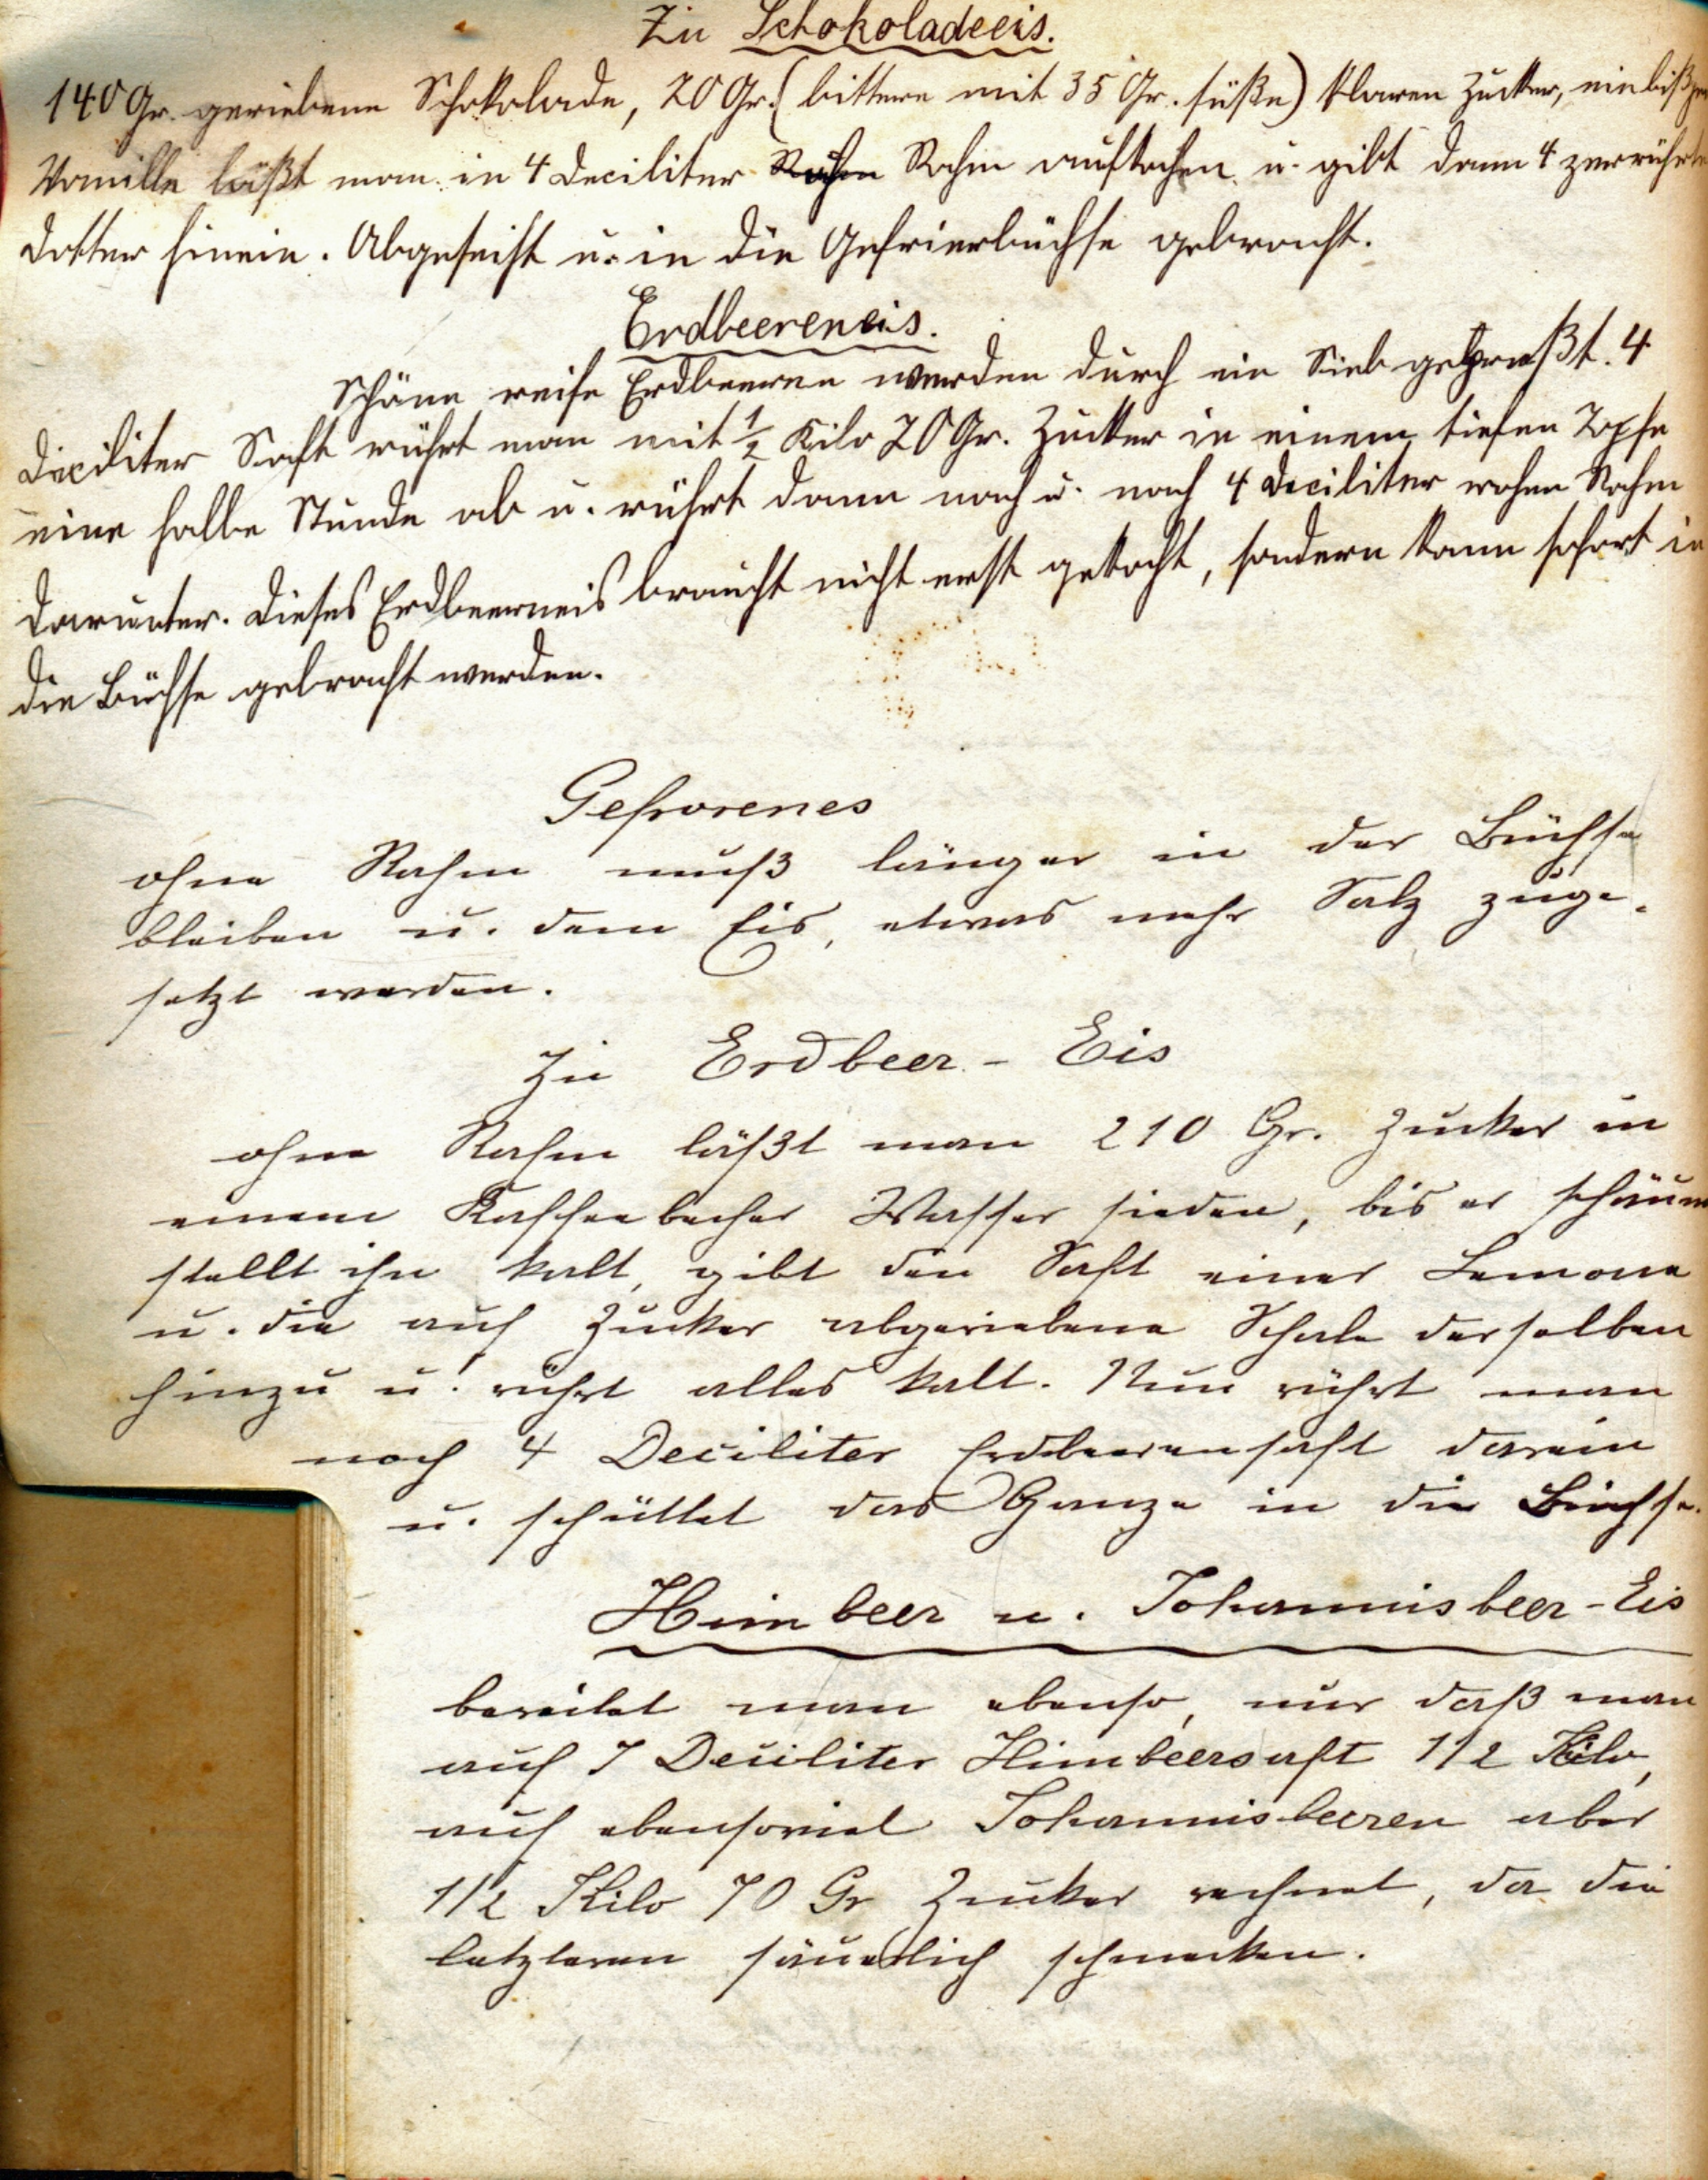 Zu Schokoladeeis.
140 Gr. geriebene Schokolade, 20 Gr. (bittere mit 35 Gr. süße) klaren Zucker, ein bißchen
Vanille läßt man in 4 Deciliter Rahm Rahm aufkochen u. gibt dann 4 zerrührte
Dotter hinein. Abgeseiht u. in die Gefrierbüchse gebracht.
Erdbeereneis.
Schöne reife Erdbeeren werden durch ein Sieb gepreßt. 4
Deciliter Saft rührt man mit ½ Kilo 20 Gr. Zucker in einem tiefen Topfe
eine halbe Stunde ab u. rührt dann nach u. nach 4 Deciliter rohen Rahm
darunter. Dieses Erdbeereneis braucht nicht erst gekocht, sondern kann sofort in
die Büchse gebracht werden.
Gefrorenes
ohne Rahm muß länger in der Büchse
bleiben u. dem Eis, etwas mehr Salz zuge-
setzt werden.
Zu Erdbeer-Eis
ohne Rahm läßt man 210 Gr. Zucker in
einem Kaffeebecher Wasser sieden, bis er schäumt
stellt ihn kalt, gibt den Saft einer Lemone
u. die auf Zucker abgeriebene Schale derselben
hinzu u. rührt alles kalt. Nun rührt man
noch 4 Deciliter Erdbeerensaft darein
u. schüttet das Ganze in die Büchse.
Himbeer u. Johannisbeer-Eis
bereitet man ebenso, nur daß man
auf 7 Deciliter Himbeersaft 1/2 Kilo,
auf ebensoviel Johannisbeeren aber
1/2 Kilo 70 Gr Zucker rechnet, da die
letzteren säuerlich schmecken.